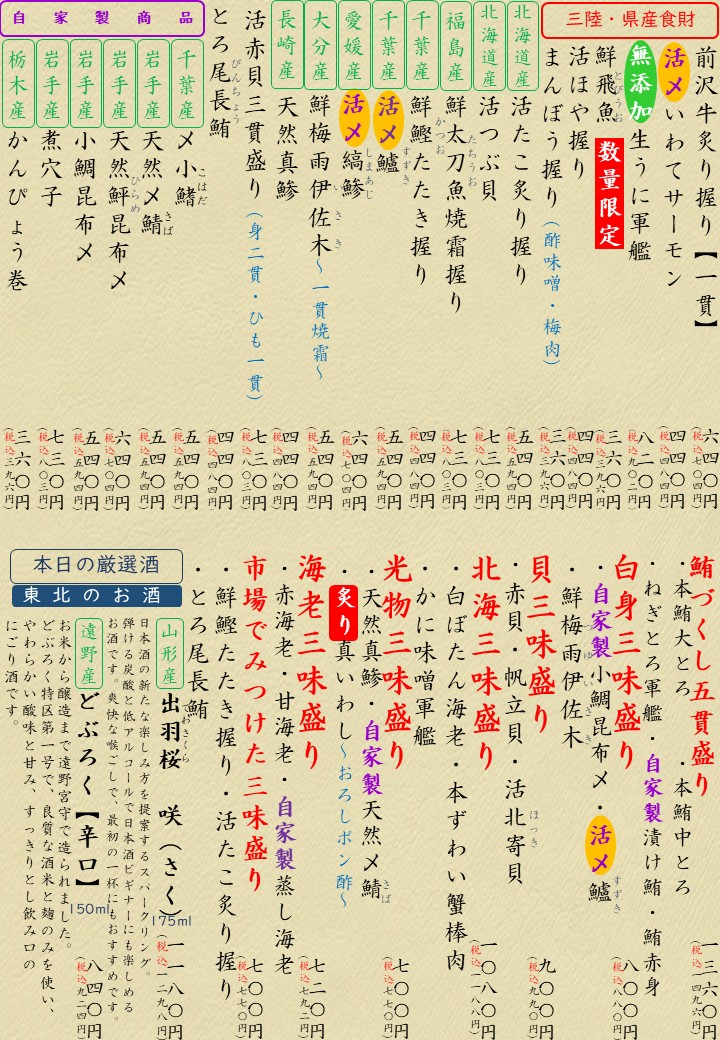 三陸・県産食財
前沢牛炙り握り【一貫】 六四〇円(税込七〇四円)
活〆いわてサーモン 四四〇円(税込四八四円)
無添加生うに軍艦 八二〇円(税込九〇二円)
鮮飛魚とびうお 数量限定 三六〇円(税込三九六円)
活ほや握り 四四〇円(税込四八四円)
まんぼう握り(酢味噌・梅肉) 三六〇円(税込三九六円)
北海道産 活たこ炙り握り 四四〇円(税込四八四円)
北海道産 活つぶ貝 七三〇円(税込八〇三円)
福島産 鮮太刀魚焼霜握り たちうお 七三〇円(税込八〇三円)
千葉産 鮮鰹たたき握り かつお 四四〇円(税込四八四円)
千葉産 活〆鱸 すずき 五四〇円(税込五九四円)
愛媛産 活〆縞鯵 しまあじ 六四〇円(税込七〇四円)
大分産 鮮梅雨伊佐木～一貫焼霜～ いさき 五四〇円(税込五九四円)
長崎産 天然真鯵 四四〇円(税込四八四円)
活赤貝三貫盛り(身二貫・ひも一貫) 七三〇円(税込八〇三円)
とろ尾長鮪 びんちょう 四四〇円(税込四八四円)
自家製商品
千葉産 〆小鰭 こはだ 五四〇円(税込五九四円)
岩手産 天然〆鯖 さば 五四〇円(税込五九四円)
岩手産 天然鮃昆布〆 ひらめ 六四〇円(税込七〇四円)
岩手産 小鯛昆布〆 五四〇円(税込五九四円)
岩手産 煮穴子 七三〇円(税込八〇三円)
栃木産 かんぴょう巻 三六〇円(税込三九六円)
鮪づくし五貫盛り 一三六〇円(税込一四九六円)
・本鮪大とろ ・本鮪中とろ
・ねぎとろ軍艦・自家製漬け鮪・鮪赤身
白身三味盛り 八〇〇円(税込八八〇円)
・自家製小鯛昆布〆・活〆鱸 すずき
・鮮梅雨伊佐木
貝三味盛り 九〇〇円(税込九九〇円)
・赤貝・帆立貝・活北寄貝 ほっき
北海三味盛り 一〇八〇円(税込一一八八円)
・白ぼたん海老・本ずわい蟹棒肉
・かに味噌軍艦
光物三味盛り 七〇〇円(税込七七〇円)
・天然真鯵・自家製天然〆鯖 さば
・炙り真いわし～おろしポン酢～
海老三味盛り 七二〇円(税込七九二円)
・赤海老・甘海老・自家製蒸し海老
市場でみつけた三味盛り 七〇〇円(税込七七〇円)
・鮮鰹たたき握り・活たこ炙り握り
・とろ尾長鮪
本日の厳選酒
東北のお酒
山形産 出羽桜 咲(さく) でわさくら 175ml 一一八〇円(税込一二九八円)
日本酒の新たな楽しみ方を提案するスパークリング。
弾ける炭酸と低アルコールで日本酒ビギナーにも楽しめる
お酒です。爽快な喉ごしで、最初の一杯にもおすすめです。
遠野産 どぶろく【辛口】 150ml 八四〇円(税込九二四円)
お米から醸造まで遠野宮守で造られました。
どぶろく特区第一号で、良質な酒米と麹のみを使い、
やわらかい酸味と甘み、すっきりとし飲み口の
にごり酒です。